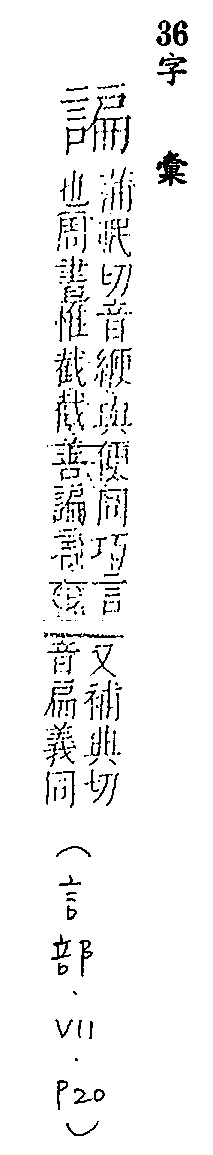 36
字彙
諞
蒲眠切音緶與便同巧言
也周書惟截截善諞言
又補典切
音扁義同
(言部.VII.P20)